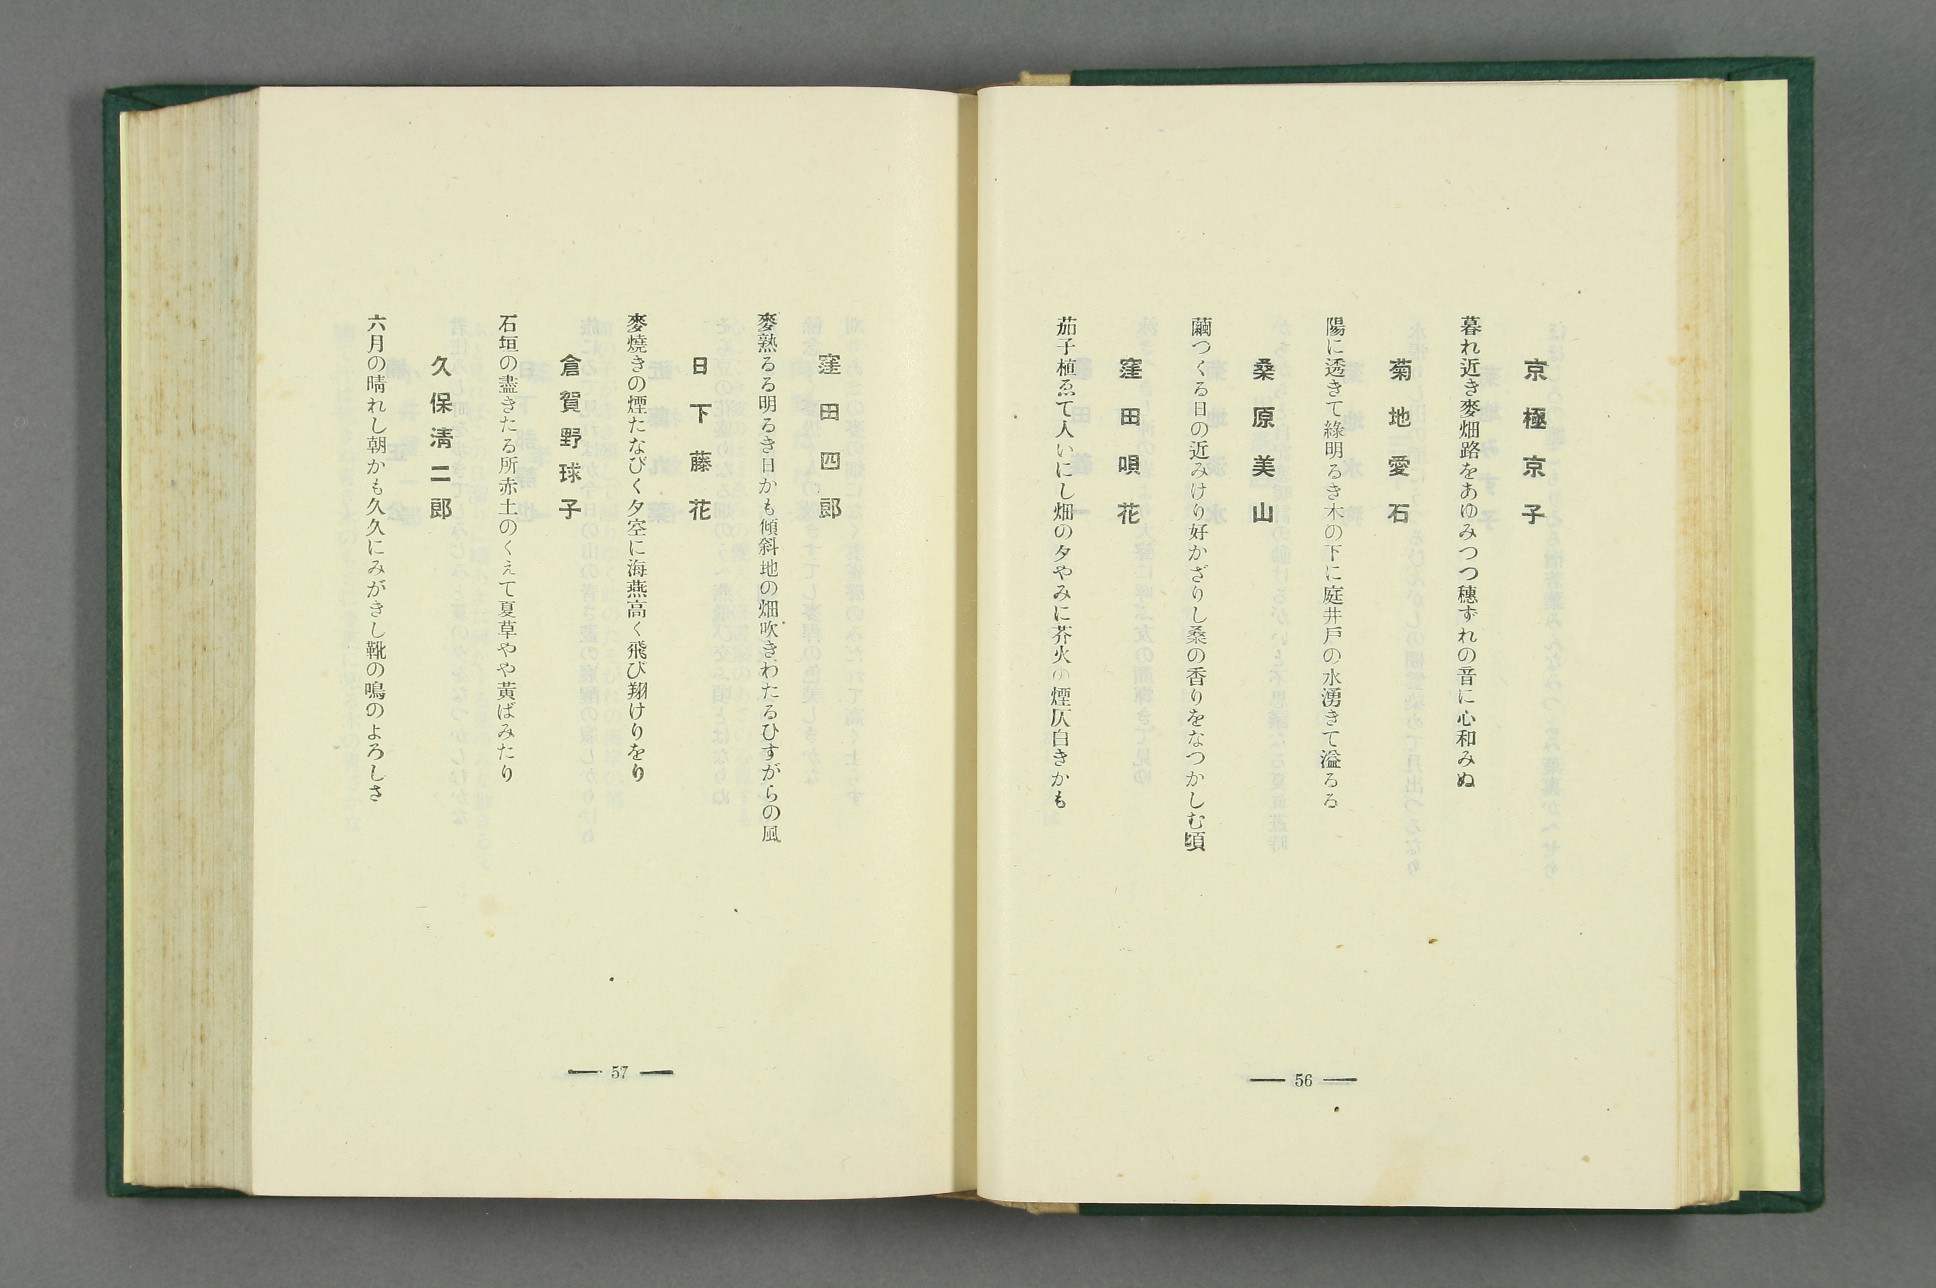 京極京子
暮れ近き麥畑路をあゆみつつ穗ずれの音に心和みぬ
菊地愛石
陽に透きて綠明るき木の下に庭井戸の水湧きて溢るる
桑原美山
繭つくる日の近みけり好かざりし桑の香りをなつかしむ頃
窪田唄花
茄子植ゑて人いにし畑の夕やみに芥火の煙仄白きかも
56
窪田四郎
麥熟るる明るき日かも傾斜地の畑吹きわたるひすがらの風
日下藤花
麥燒きの煙たなびく夕空に海燕高く飛び翔けりをり
倉賀野球子
石垣の盡きたる所赤土のくえて夏草やや黃ばみたり
久保淸二郎
六月の晴れし朝かも久久にみがきし靴の鳴のよろしさ
57